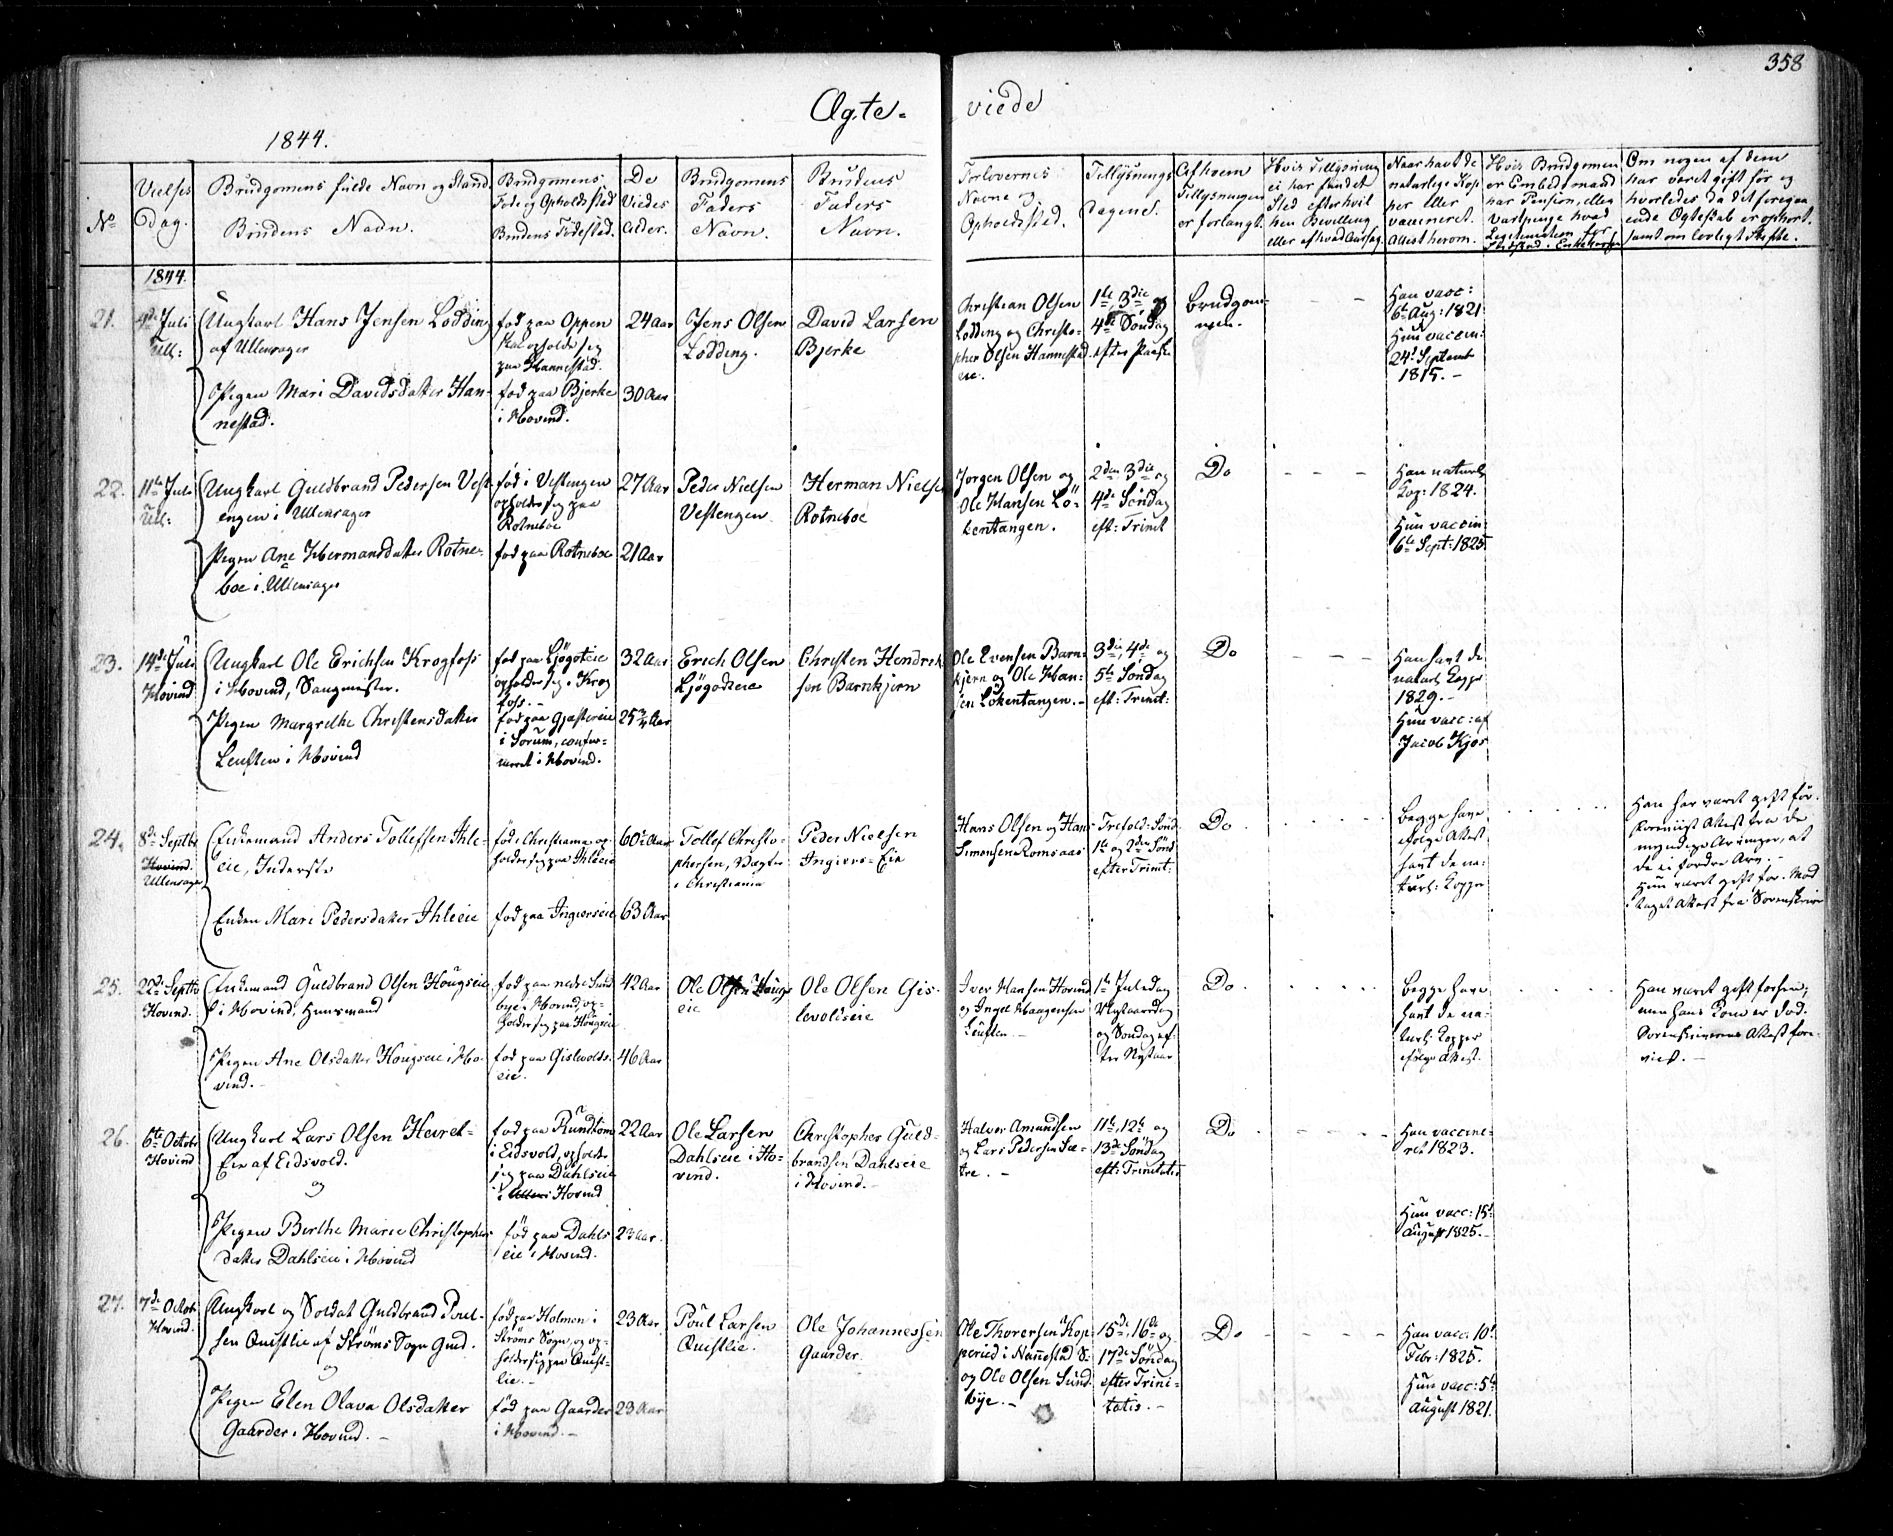 358
Ægte-
viede
1844.
No
Vielses
Dag.
Brudgomens fulde Navn og Stand
Brudens Navn.
Brudgomens
Føde og Opholdssted
Brudens Fødested.
De
Viedes
Alder.
Brudgomens
Faders
Navn.
Brudens
Faders
Navn.
Forlovernes
Navne og
Opholdssted.
Tillysnings
Dagene.
Af hvem
Tillysningen
er forlangt.
Hvis Tillysning
ei har fundet
Sted efter hvil
ken Bevilling
eller af hvad Aarsag
Naar havt de
naturlige Kop
per eller
vaccineret.
Attest herom.
Hvis Brudgomen
er Embedsmand
har Pension, eller
Vartpenge hvad
Legitimation for
Indskud i Enkekassen
Om nogen af dem
har været gift før og
hvorledes da det foregaa
ende Ægteskab er ophørt,
samt om lovligt Skifte.
1844.
21.
4de Juli
Ull:
Ungkarl Hans Jensen Lodding
af Ullensager
Pigen Mari Davidsdatter Han-
nestad.
fød paa Oppen
opholder sig
paa Hannestad.
fød paa Bjerke
i Hovind.
24 Aar
30 Aar
Jens Olsen
Lodding.
David Larsen
Bjerke
Christian Olsen
Lodding og Christo-
pher Olsen Hannestad-
eie.
1ste, 3die og
4de Søndag
efter Paaske
Brudgom-
men.
Han vacc:
6te Aug: 1821
Hun vaccin:
24de Septemb
1815. -
22.
11te Juli
Ull:
Ungkarl Guldbrand Pedersen Vest-
engen i Ullensager
Pigen Ane Hermansdatter Rotne-
boe i Ullensager
fød i Vestengen
opholder sig paa
Rotneboe
fød paa Rotneboe
27 Aar
21 Aar
Peder Nielsen
Vestengen
Herman Nielsen
Rotneboe
Jørgen Olsen og
Ole Hansen Lö-
kentangen.
2den 3die og
4de Søndag
eft: Trinit
Do
Han naturl
Kop: 1824.
Hun vaccin:
6te Sept: 1825.
23.
14de Juli
Hovind
Ungkarl Ole Erichsen Krogfoss
i Hovind, Saugmester.
Pigen Margrethe Christensdatter
Leuften i Hovind
fød paa Ljøgoteie
opholder sig i Krog
foss. -
fød paa Gjæstereie
i Sørum, confir-
meret i Hovind.
32 Aar
25 3/4 Aar
Erich Olsen
Ljøgodteie
Christen Hendrik
sen Barnkjern
Ole Evensen Barn-
kjern og Ole Han-
sen Lökentangen. -
3die, 4de og
5te Søndag
eft: Trinit:
Do
Han havt de
naturl Kopper
1829. -
Hun vacc: af
Jacob Kjos
24.
8de Septbr
Hovind.
Ullensager
Enkemand Anders Tollefsen Ihle-
eie, Inderste
Enken Mari Pedersdatter Ihleeie
fød i Christiania op-
holder sig paa Ihleeie
fød paa Ingierseie
60 Aar
63 Aar
Tollef Christo-
phersen, Vægter
i Christiania
Peder Nielsen
Ingiers-Eie
Hans Olsen og Hans
Simensen Romsaas
Trefold: Sønd
1te og 2den Sønd
efter Trinit:
Do
Begge have
ifølge Attest
havt de na-
turl: Kopper
Han har været gift før.
Foreviist Attest fra de
myndige Arvinger, at
de ei fordre Arv. -
Hun været gift før. Mod
taget Attest fra Sorenskriver
25.
22de Septbr
Hovind.
Enkemand Guldbrand Olsen Hougseie
i Hovind, Huusmand
Pigen Ane Olsdatter Hougseie i Ho-
vind. -
fød paa nedre Sund
bye i Hovind, op-
holder sig paa Hougseie
fød paa Gislevolds-
eie.
42 Aar
46 Aar
Ole Olsen Hougs
eie
Ole Olsen Gis-
levoldseie
Iver Hansen Hovind
og Ingel Haagensen
Leuften. -
1te Juledag
Nytaarsdag
og Søndag ef-
ter Nytaar
Do
Begge have
havt de na-
turl: Kopper
ifølge Attest.
Han været gift forhen;
men hans Kone er død.
Sorenskriverens Attest fore-
viist. -
26.
6te Octobr
Hovind
Ungkarl Lars Olsen Heiret-
Eie af Eidsvold.
og
Pigen Berthe Marie Christophers
datter Dahlseie i Hovind
fød paa Rundtom
i Eidsvold, opholder
sig paa Dahlseie
i Hovind
fød paa Dahls
eie i Hovind.
22 Aar
23 Aar.
Ole Larsen
Dahlseie i Ho-
vind.
Christopher Guld-
brandsen Dahlseie
i Hovind. -
Halvor Amundsen
og Lars Pedersen Sæ-
tre.
11te, 12te og
13de Søndag
eft: Trinitatis
Do
Han vaccine-
ret 1823.
Hun vacc: 15d
August 1825. -
27.
7de Octobr
Hovind.
Ungkarl og Soldat Guldbrand Poul-
sen Quistlie af Strøms Sogn Gud.
og
Pigen Elen Olava Olsdatter
Gaarder i Hovind. -
fød paa Holmen i
Strøms Sogn, og op-
holder sig paa Quist-
lie. -
fød paa Gaarder
i Hovind. -
23 Aar
23 Aar
Poul Larsen
Quistlie.
Ole Johannessen
Gaarder.
Ole Thorersen Kop-
perud i Nannestad S-
og Ole Olsen Sund-
bye. -
15de, 16de og
17de Søndag
efter Trini-
tatis. -
Do
Han vacc: 10d
Febr: 1825.
Hun vacc: 5te
August 1821.